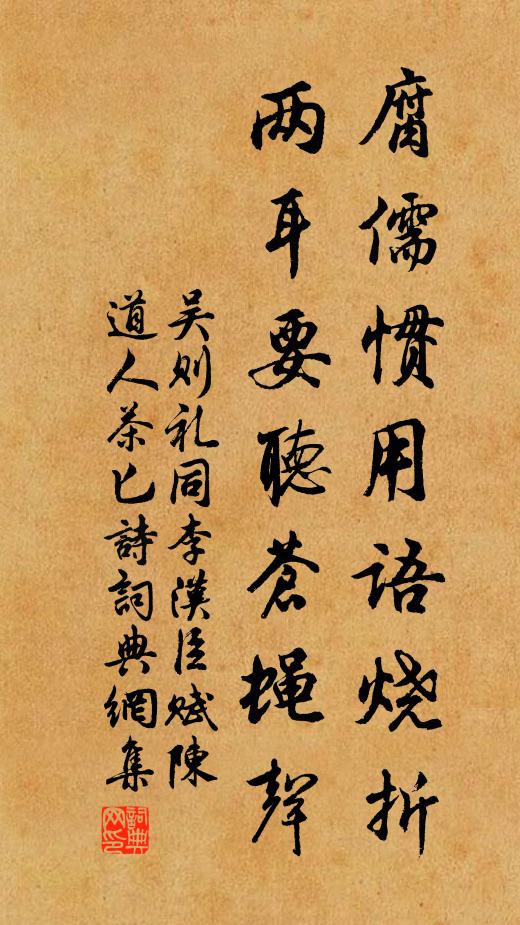 腐儒惯用语烧折
两耳要聴苍蝇聲
吴则礼同李漢臣赋陳
道人茶匕詩詞典網集
詞典网印